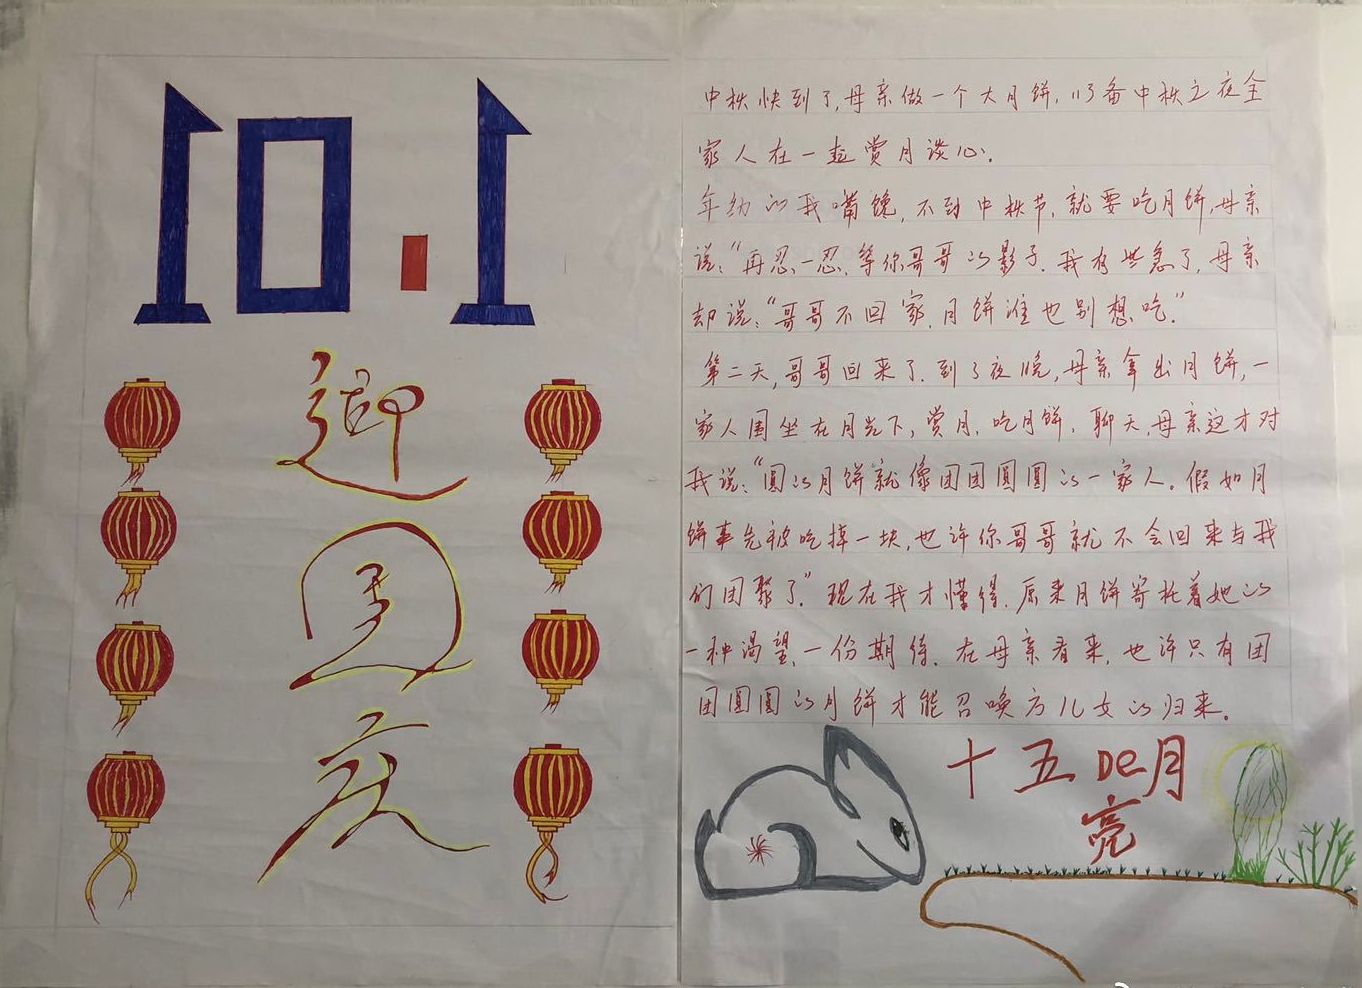 10.1
迎
国
庆
中秋快到了,母亲做一个大月饼,准备中秋之夜全
家人在一起赏月谈心.
年幼的我嘴馋,不到中秋节,就要吃月饼,母亲
说:“再忍一忍,等你哥哥的影子.我有些急了,母亲
却说:“哥哥不回家,月饼谁也别想吃.”
第二天,哥哥回来了.到了夜晚,母亲拿出月饼,一
家人围坐在月光下,赏月,吃月饼,聊天,母亲这才对
我说:“圆的月饼就像团团圆圆的一家人。假如月
饼事先被吃掉一块,也许你哥哥就不会回来与我
们团聚了.”现在我才懂得,原来月饼寄托着她的
一种渴望、一份期待.在母亲看来,也许只有团
团圆圆的月饼才能召唤方儿女的归来。
十五De月
亮